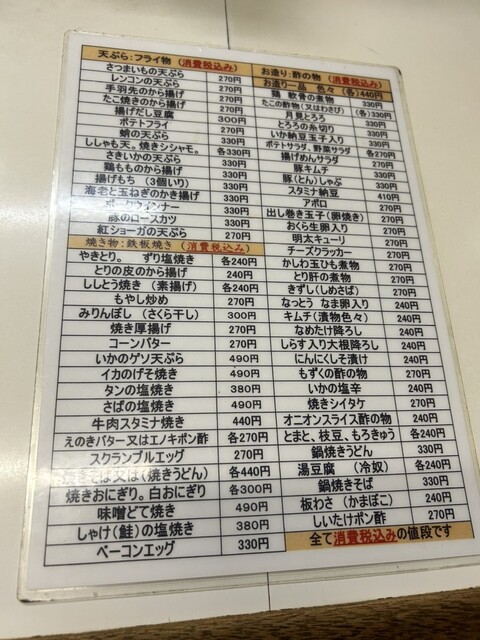 天ぷら:フライ物 (消費税込み)
さつまいもの天ぷら 270円
レンコンの天ぷら 270円
手羽先のから揚げ 270円
たこ焼きのから揚げ 270円
揚げだし豆腐 300円
ポテトフライ 270円
蛸の天ぷら 330円
ししゃも天。焼きシシャモ。 各330円
さきいかの天ぷら 330円
鶏もものから揚げ 330円
揚げもち (3個いり) 330円
海老と玉ねぎのかき揚げ 330円
ポークウインナー 330円
豚のロースカツ 330円
紅ショーガの天ぷら 270円
焼き物:鉄板焼き (消費税込み)
やきとり。 ずり塩焼き 各240円
とりの皮のから揚げ 240円
ししとう焼き (素揚げ) 各240円
もやし炒め 270円
みりんぼし (さくら干し) 270円
焼き厚揚げ 270円
コーンバター 270円
いかのゲソ天ぷら 490円
イカのげそ焼き 490円
タンの塩焼き 380円
さばの塩焼き 490円
牛肉スタミナ焼き 440円
えのきバター又はエノキポン酢 各270円
スクランブルエッグ 270円
焼きそば又は(焼きうどん) 各440円
焼きおにぎり。白おにぎり 各300円
味噌どて焼き 490円
しゃけ(鮭)の塩焼き 380円
ベーコンエッグ 330円
お造り:酢の物 (消費税込み)
お造り一品 色々 (各)440円
鶏 軟骨の煮物 330円
たこの酢物(又はわさび) (各)330円
月見とろろ 330円
とろろの糸切り 330円
いか納豆玉子入り 330円
ポテトサラダ、野菜サラダ 各270円
揚げめんサラダ 270円
豚キムチ 330円
豚(とん)しゃぶ 330円
スタミナ納豆 410円
アボロ 330円
出し巻き玉子(卵焼き) 270円
おくら生卵入り 270円
明太キューリ 270円
チーズクラッカー 270円
かしわ玉ひも煮物 270円
とり肝の煮物 270円
きずし(しめさば) 270円
なっとう なま卵入り 240円
キムチ(漬物色々) 240円
なめたけ降ろし 240円
しらす入り大根降ろし 240円
にんにくしそ漬け 240円
もずくの酢の物 240円
いかの塩辛 240円
焼きシイタケ 240円
オニオンスライス酢の物 240円
とまと、枝豆、もろきゅう 各240円
鍋焼きうどん 330円
湯豆腐 (冷奴) 各240円
鍋焼きそば 330円
板わさ (かまぼこ) 240円
しいたけポン酢 270円
全て消費税込みの値段です